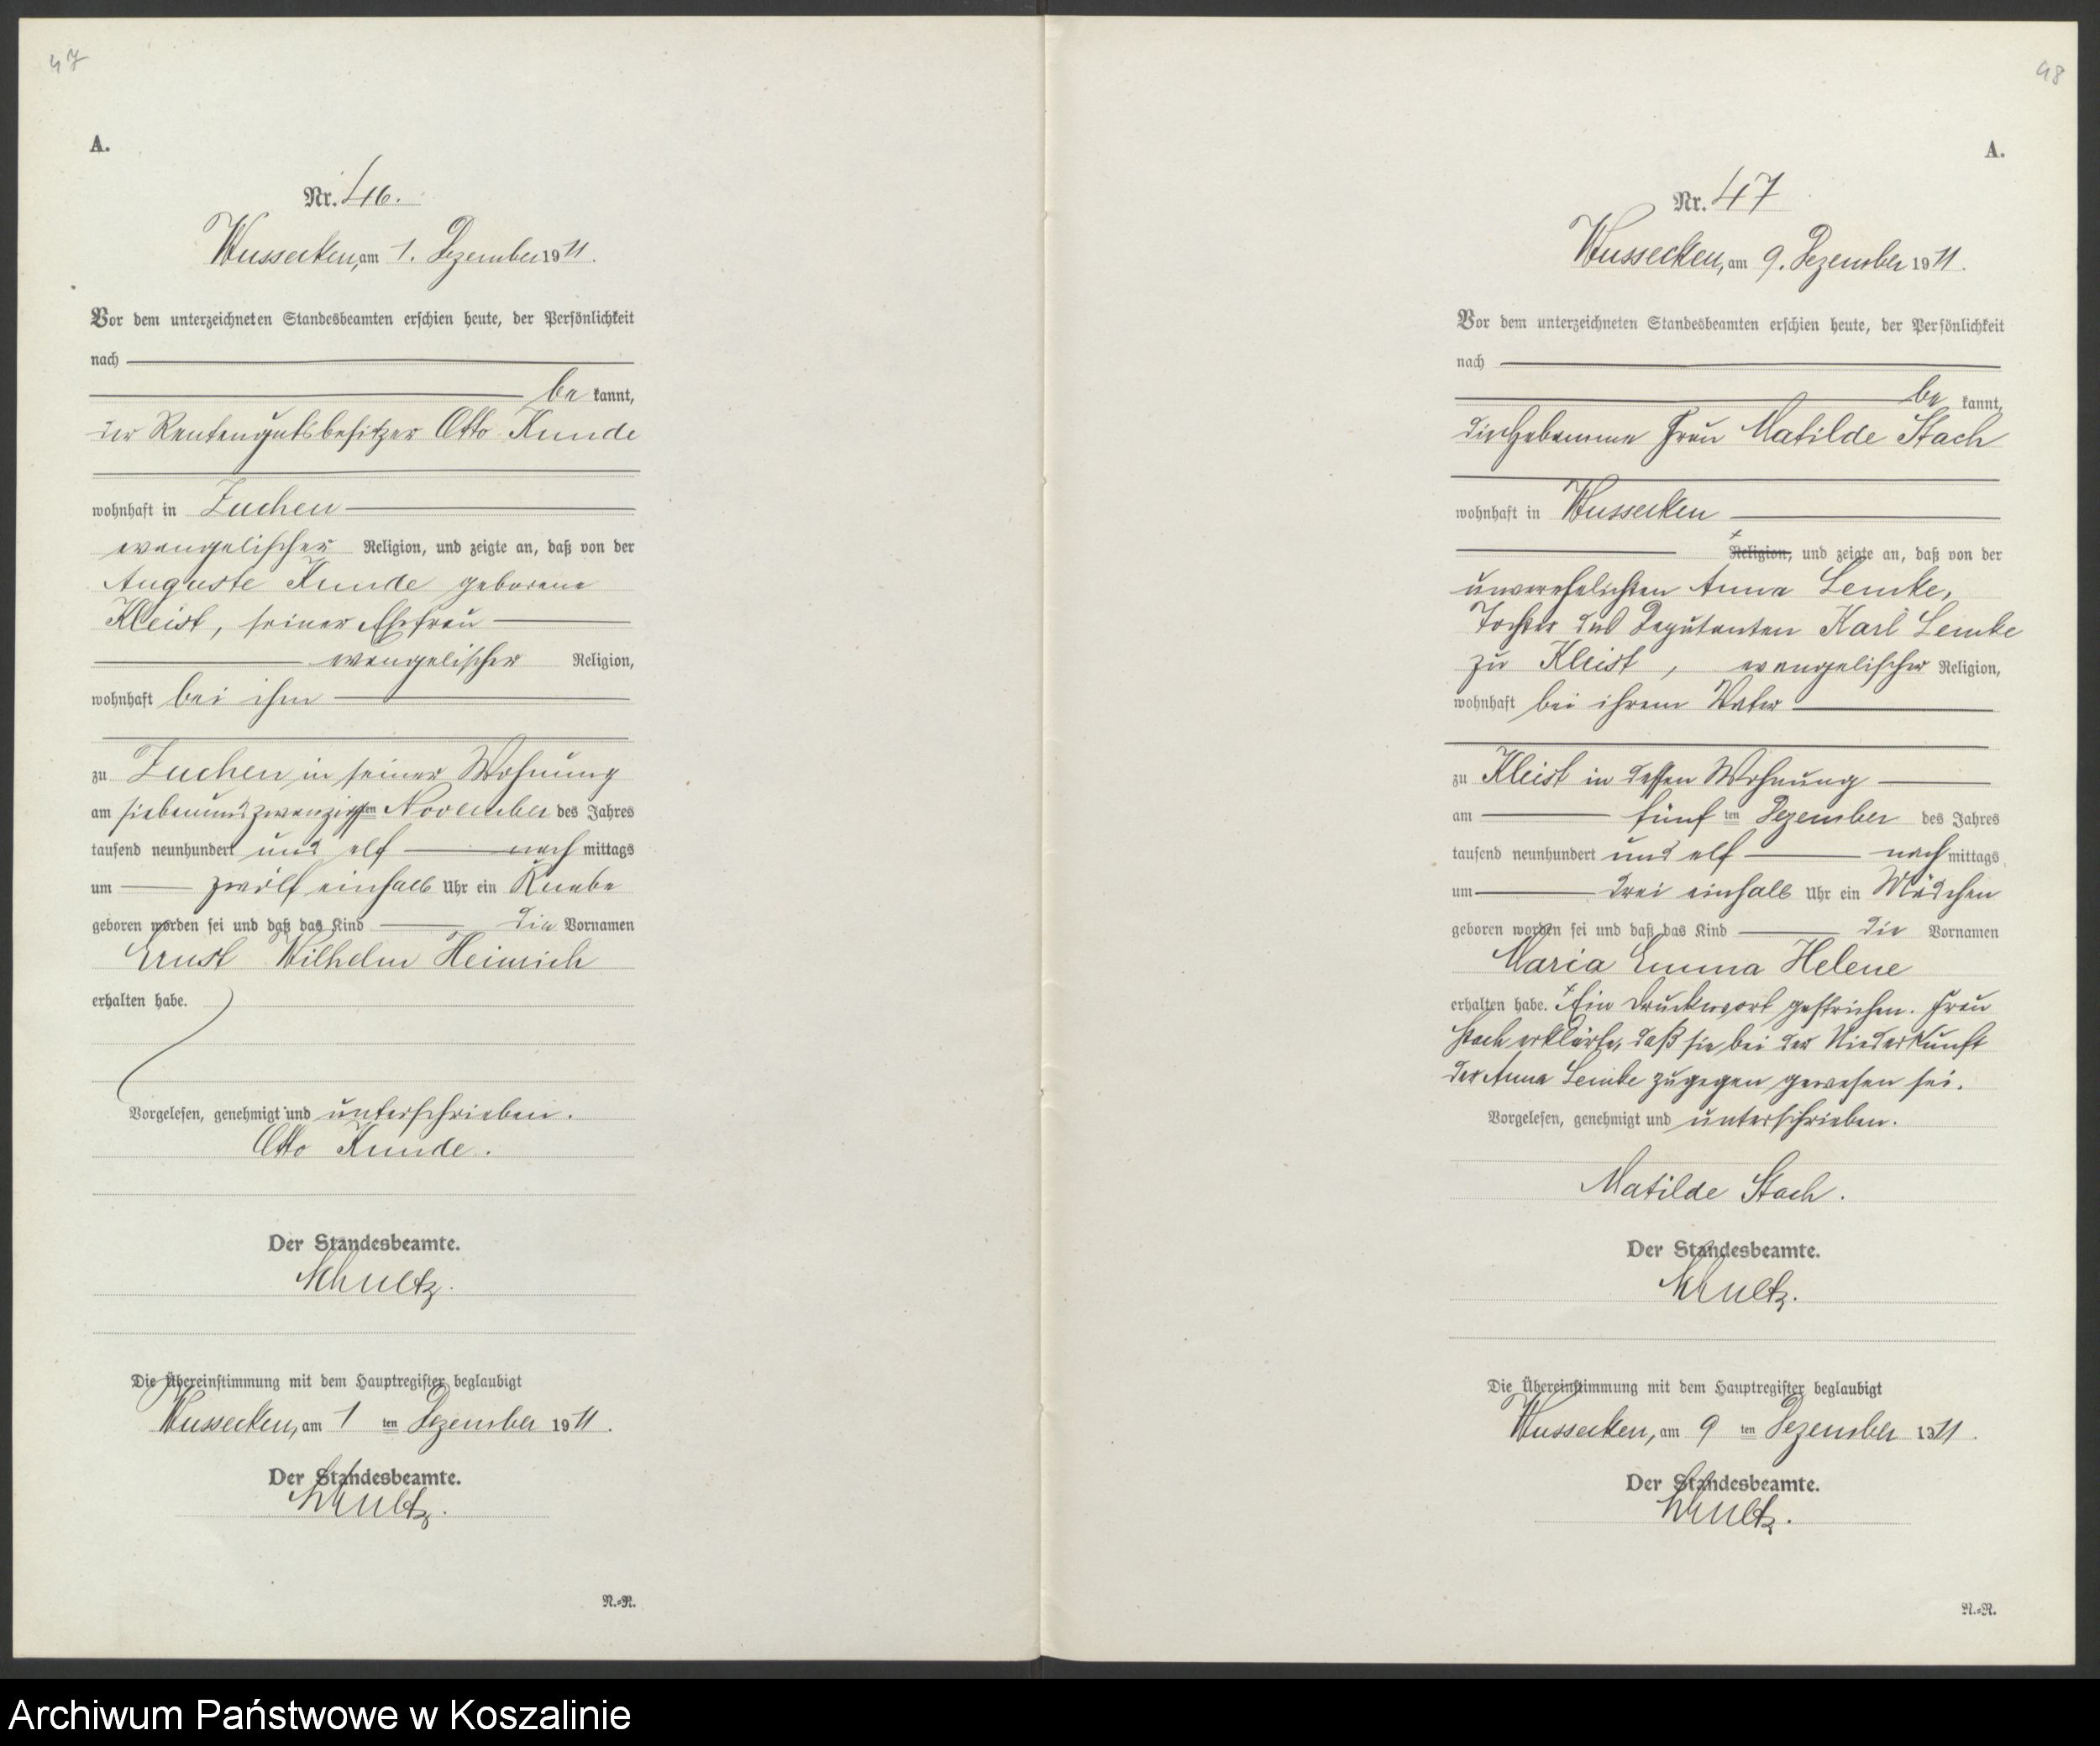 47
A.
Nr. 46.
Wussecken, am 1. Dezember 1911.
Vor dem unterzeichneten Standesbeamten erschien heute, der Persönlichkeit
nach
be kannt,
der Rentengutsbesitzer Otto Kunde
wohnhaft in Zuchen
evangelischer Religion, und zeigte an, daß von der
Auguste Kunde geborene
Kleist, seiner Ehefrau
evangelischer Religion,
wohnhaft bei ihm
zu Zuchen in seiner Wohnung
am siebenundzwanzigsten November des Jahres
tausend neunhundert und elf nach mittags
um zwölf einhalb Uhr ein Knabe
geboren worden sei und daß das Kind die Vornamen
Ernst Wilhelm Heinrich
erhalten habe.
Vorgelesen, genehmigt und unterschrieben.
Otto Kunde.
Der Standesbeamte.
Schultz.
Die Übereinstimmung mit dem Hauptregister beglaubigt
Wussecken, am 1 ten Dezember 1911.
Der Standesbeamte.
Schultz.
N.=R.
48
A.
Nr. 47
Wussecken, am 9. Dezember 1911.
Vor dem unterzeichneten Standesbeamten erschien heute, der Persönlichkeit
nach
be kannt,
die Hebamme Frau Matilde Stach
wohnhaft in Wussecken
+ Religion, und zeigte an, daß von der
unverehelichten Anna Lemke,
Tochter des Deputanten Karl Lemke
zu Kleist, evangelischer Religion,
wohnhaft bei ihrem Vater
zu Kleist in dessen Wohnung
am fünf ten Dezember des Jahres
tausend neunhundert und elf nach mittags
um drei einhalb Uhr ein Mädchen
geboren worden sei und daß das Kind die Vornamen
Maria Emma Helene
erhalten habe. + Ein Druckwort gestrichen. Frau
Stach erklärte, daß sie bei der Niederkunft
der Anna Lemke zugegen gewesen sei.
Vorgelesen, genehmigt und unterschrieben.
Matilde Stach.
Der Standesbeamte.
Schultz.
Die Übereinstimmung mit dem Hauptregister beglaubigt
Wussecken, am 9 ten Dezember 1911.
Der Standesbeamte.
Schultz.
N.=R.
Archiwum Państwowe w Koszalinie